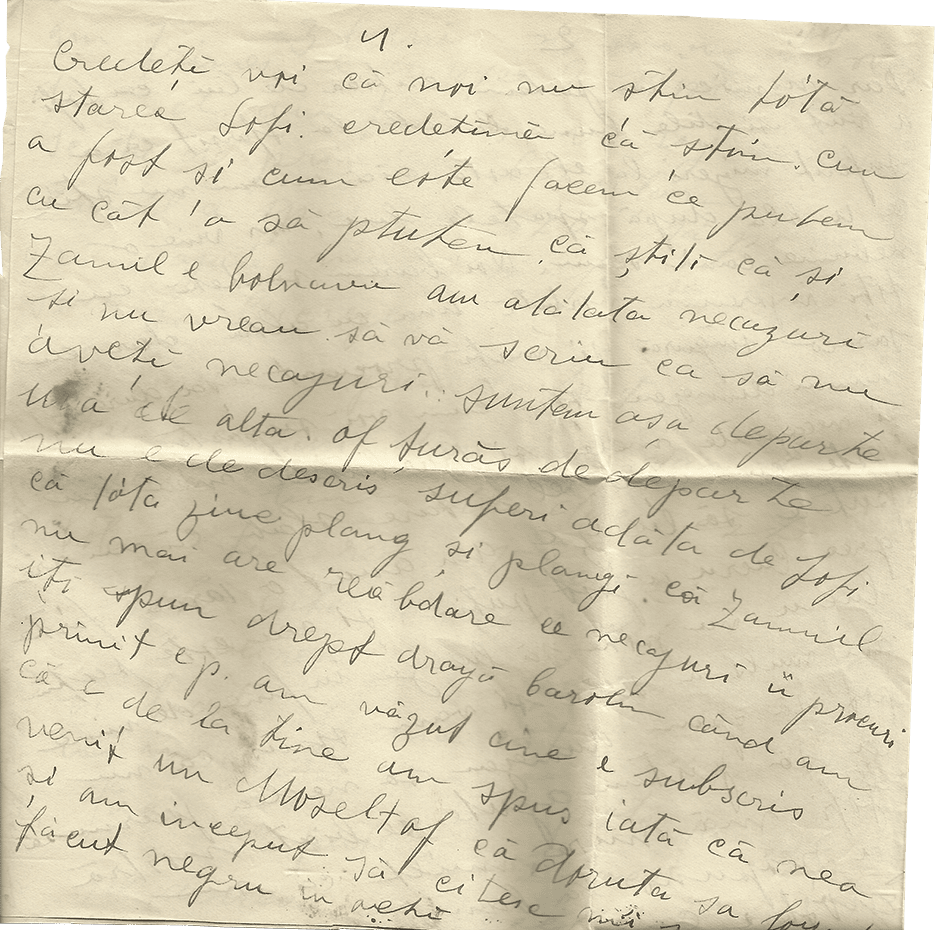 4.
Credeti voi că noi nu stim tótă
starea Sofi. credetimă că stim. cum
a fost si cum este facem ce putem
cu cât 'o să putem că știti că si
Zamil e bolnavu am atâlata necazuri
si nu vreau să vă scriu ca să nu
aveti necajuri. suntem asa departe
una de alta. of turăs de departe
nu e de descris superi adâta de Sofi
că tóta zine plang si plangi că Zamuil
nu mai are răbdare ce necajuri ii procuri
iti spun drept dragă baroln când am
primit ep. am văzut cine e subscris
că e de la tine am spus iată că nea
venit un Moselt of că doruta sa
si am inceput să citesc mi s
făcut negru in oeti